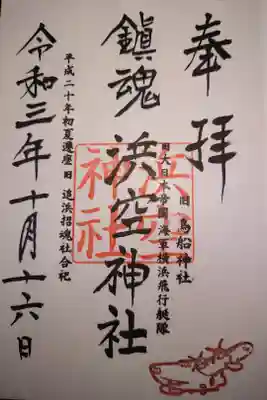 奉拝
旧鳥船神社
旧大日本帝國海軍横浜飛行艇隊
鎮魂 浜空神社
浜空
神社
平成二十年初夏遷座 旧 追浜招魂社合祀
令和三年十月十六日